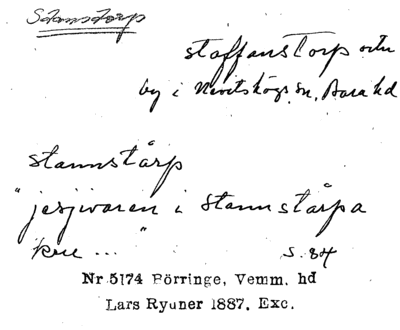 Stanstorp
staffanstorp
by i Nevitshögs sn, Bara hd
stannstårp
"jesjivaren i stannstårpa
..."
s. 84
Nr 5174 Börringe, Vemm. hd
Lars Ryuner 1887. Exc.